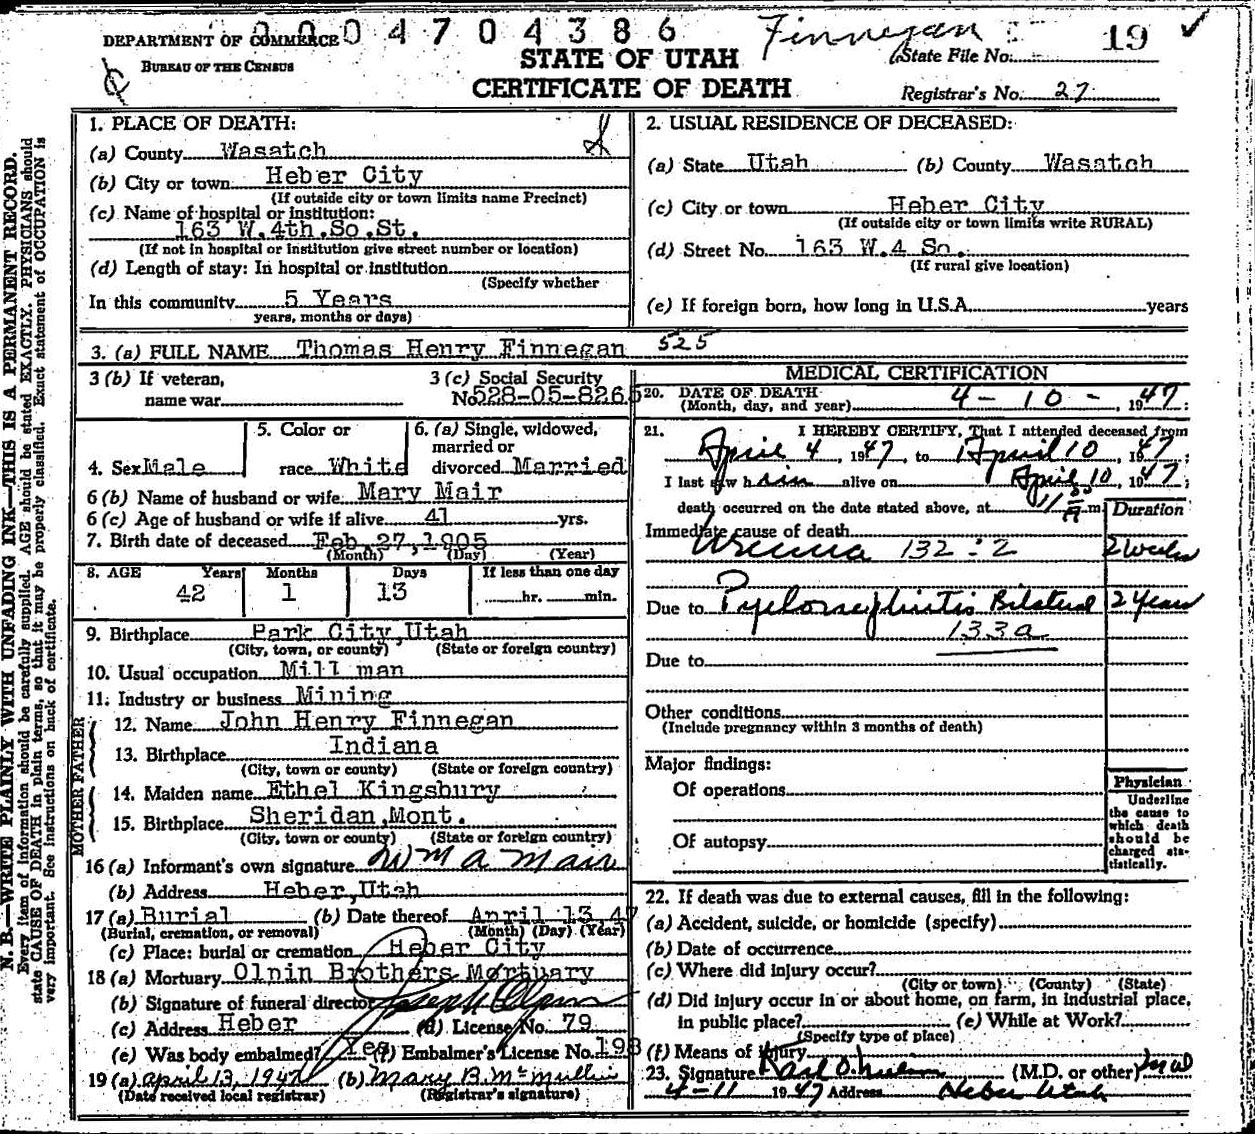 0004704386 Finnegan 19 ✓
DEPARTMENT OF COMMERCE
BUREAU OF THE CENSUS
STATE OF UTAH
CERTIFICATE OF DEATH
State File No.
Registrar's No. 27
N. B.—WRITE PLAINLY WITH UNFADING INK—THIS IS A PERMANENT RECORD.
Every item of information should be carefully supplied. AGE should be stated EXACTLY. PHYSICIANS should
state CAUSE OF DEATH in plain terms, so that it may be properly classified. Exact statement of OCCUPATION is
very important. See instructions on back of certificate.
1. PLACE OF DEATH:
(a) County Wasatch
(b) City or town Heber City
(If outside city or town limits name Precinct)
(c) Name of hospital or institution:
163 W.4th.So.St.
(If not in hospital or institution give street number or location)
(d) Length of stay: In hospital or institution
(Specify whether
In this community 5 Years
years, months or days)
2. USUAL RESIDENCE OF DECEASED:
(a) State Utah (b) County Wasatch
(c) City or town Heber City
(If outside city or town limits write RURAL)
(d) Street No. 163 W.4 So.
(If rural give location)
(e) If foreign born, how long in U.S.A. years
3. (a) FULL NAME Thomas Henry Finnegan 525
3 (b) If veteran,
name war
3 (c) Social Security
No. 528-05-8265
4. Sex Male
5. Color or
race White
6. (a) Single, widowed,
married or
divorced Married
6 (b) Name of husband or wife Mary Mair
6 (c) Age of husband or wife if alive 41 yrs.
7. Birth date of deceased Feb 27, 1905
(Month) (Day) (Year)
8. AGE Years Months Days If less than one day
42 1 13 hr. min.
9. Birthplace Park City, Utah
(City, town, or county) (State or foreign country)
10. Usual occupation Mill man
11. Industry or business Mining
FATHER
12. Name John Henry Finnegan
13. Birthplace Indiana
(City, town or county) (State or foreign country)
MOTHER
14. Maiden name Ethel Kingsbury
15. Birthplace Sheridan, Mont.
(City, town or county) (State or foreign country)
16 (a) Informant's own signature Wm A Mair
(b) Address Heber, Utah
17 (a) Burial (b) Date thereof April 13, 47
(Burial, cremation, or removal) (Month) (Day) (Year)
(c) Place: burial or cremation Heber City
18 (a) Mortuary Olpin Brothers Mortuary
(b) Signature of funeral director Joseph Olpin
(c) Address Heber (d) License No. 79
(e) Was body embalmed? Yes (f) Embalmer's License No. 198
19 (a) April 13, 1947 (b) Mary B. McMullin
(Date received local registrar) (Registrar's signature)
MEDICAL CERTIFICATION
20. DATE OF DEATH
(Month, day, and year) 4-10-, 1947;
21. I HEREBY CERTIFY, That I attended deceased from
April 4, 1947, to April 10, 1947;
I last saw him alive on April 10, 1947;
death occurred on the date stated above, at m.
Duration
Immediate cause of death
Uremia 132:2 2 weeks
Due to Pyelonephritis Bilateral 2 Years
133a
Due to
Other conditions
(Include pregnancy within 3 months of death)
Major findings:
Of operations
Of autopsy
Physician
Underline
the cause to
which death
should be
charged sta-
tistically.
22. If death was due to external causes, fill in the following:
(a) Accident, suicide, or homicide (specify)
(b) Date of occurrence
(c) Where did injury occur?
(City or town) (County) (State)
(d) Did injury occur in or about home, on farm, in industrial place,
in public place? (e) While at Work?
(Specify type of place)
(f) Means of injury
23. Signature Karl O. Nielson (M.D. or other) MD
4-11 1947 Address Heber Utah